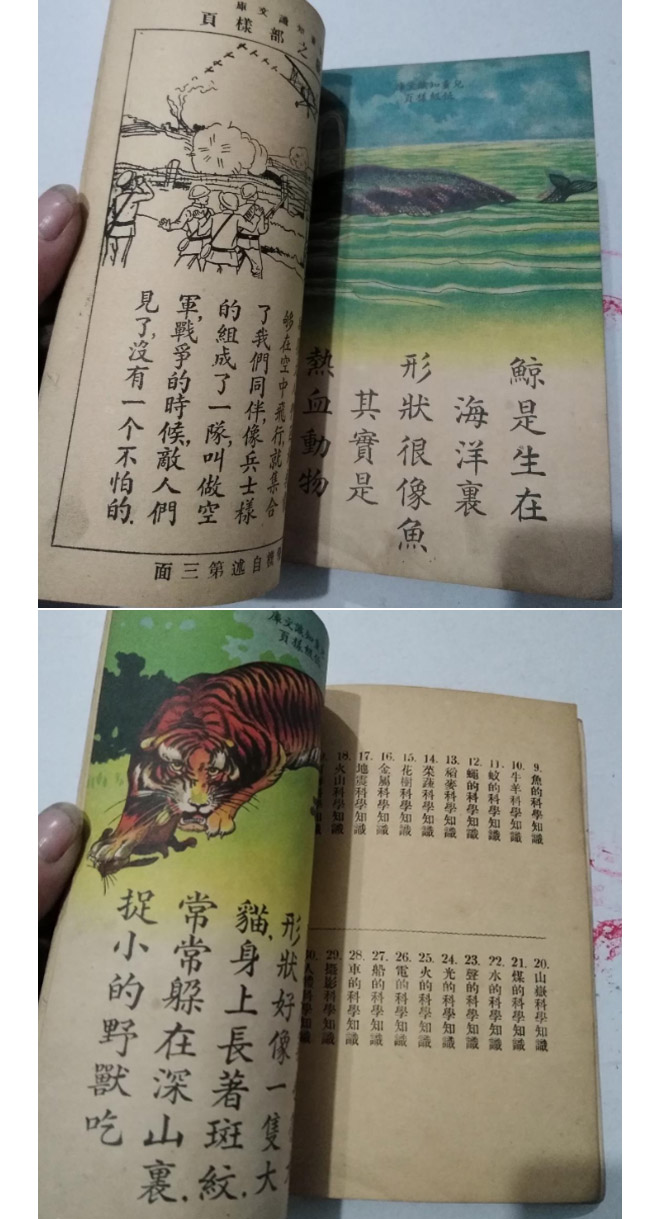 知識文庫
之部樣頁
了我們同伴,像兵士樣
的組成了一隊,叫做空
軍,戰爭的時候,敵人們
見了,沒有一个不怕的.
自述第三面
兒童知識文庫
低級樣頁
鯨是生在
海洋裏
形狀很像魚
其實是
熱血動物
知識文庫
低級樣頁
形狀好像一隻大
貓,身上長著斑紋.
常常躲在深山裏.
捉小的野獸吃
9. 魚的科學知識
10. 牛羊科學知識
11. 蚊的科學知識
12. 蠅的科學知識
13. 稻麥科學知識
14. 菜蔬科學知識
15. 花樹科學知識
16. 金屬科學知識
17. 地震科學知識
18. 火山科學知識
20. 山嶽科學知識
21. 煤的科學知識
22. 水的科學知識
23. 聲的科學知識
24. 光的科學知識
25. 火的科學知識
26. 電的科學知識
27. 船的科學知識
28. 車的科學知識
29. 攝影科學知識
30. 人體科學知識